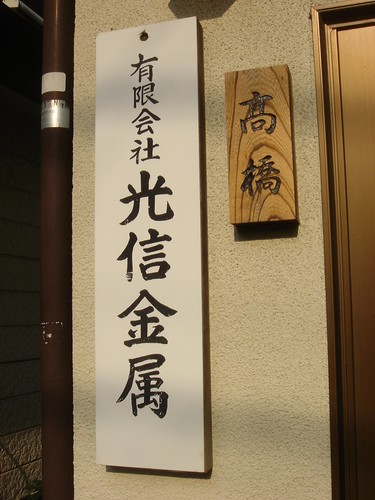 有限会社光信金属
髙橋